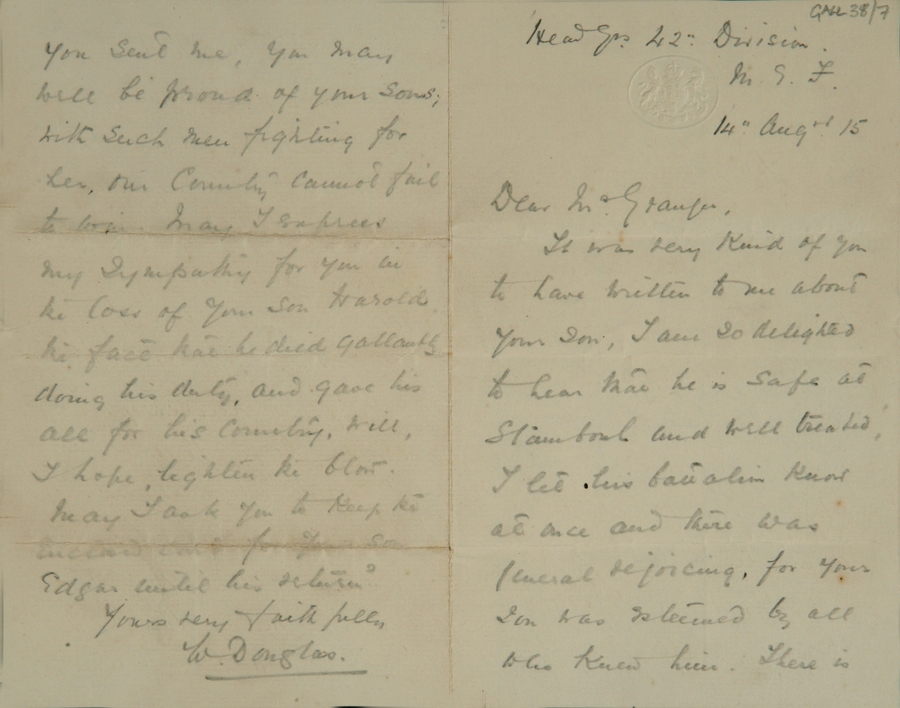 GAH 38/7
Head Qrs 42n Division.
M. E. F.
14n Augst 15
Dear Mr Granger,
It was very kind of you
to have written to me about
your son, I am so delighted
to hear that he is safe at
Stamboul and well treated,
I let his battalion know
at once and there was
general rejoicing, for your
son was esteemed by all
who knew him. There is
you sent me, you may
well be proud of your sons;
with such men fighting for
her, our Country cannot fail
to win. May I express
my sympathy for you in
the loss of your son Harold.
the fact that he died gallantly
doing his duty, and gave his
all for his Country, will,
I hope, lighten the blow.
May I ask you to keep the
enclosed card for your son
Edgar until his return?
Yours very faithfully
W. Douglas.